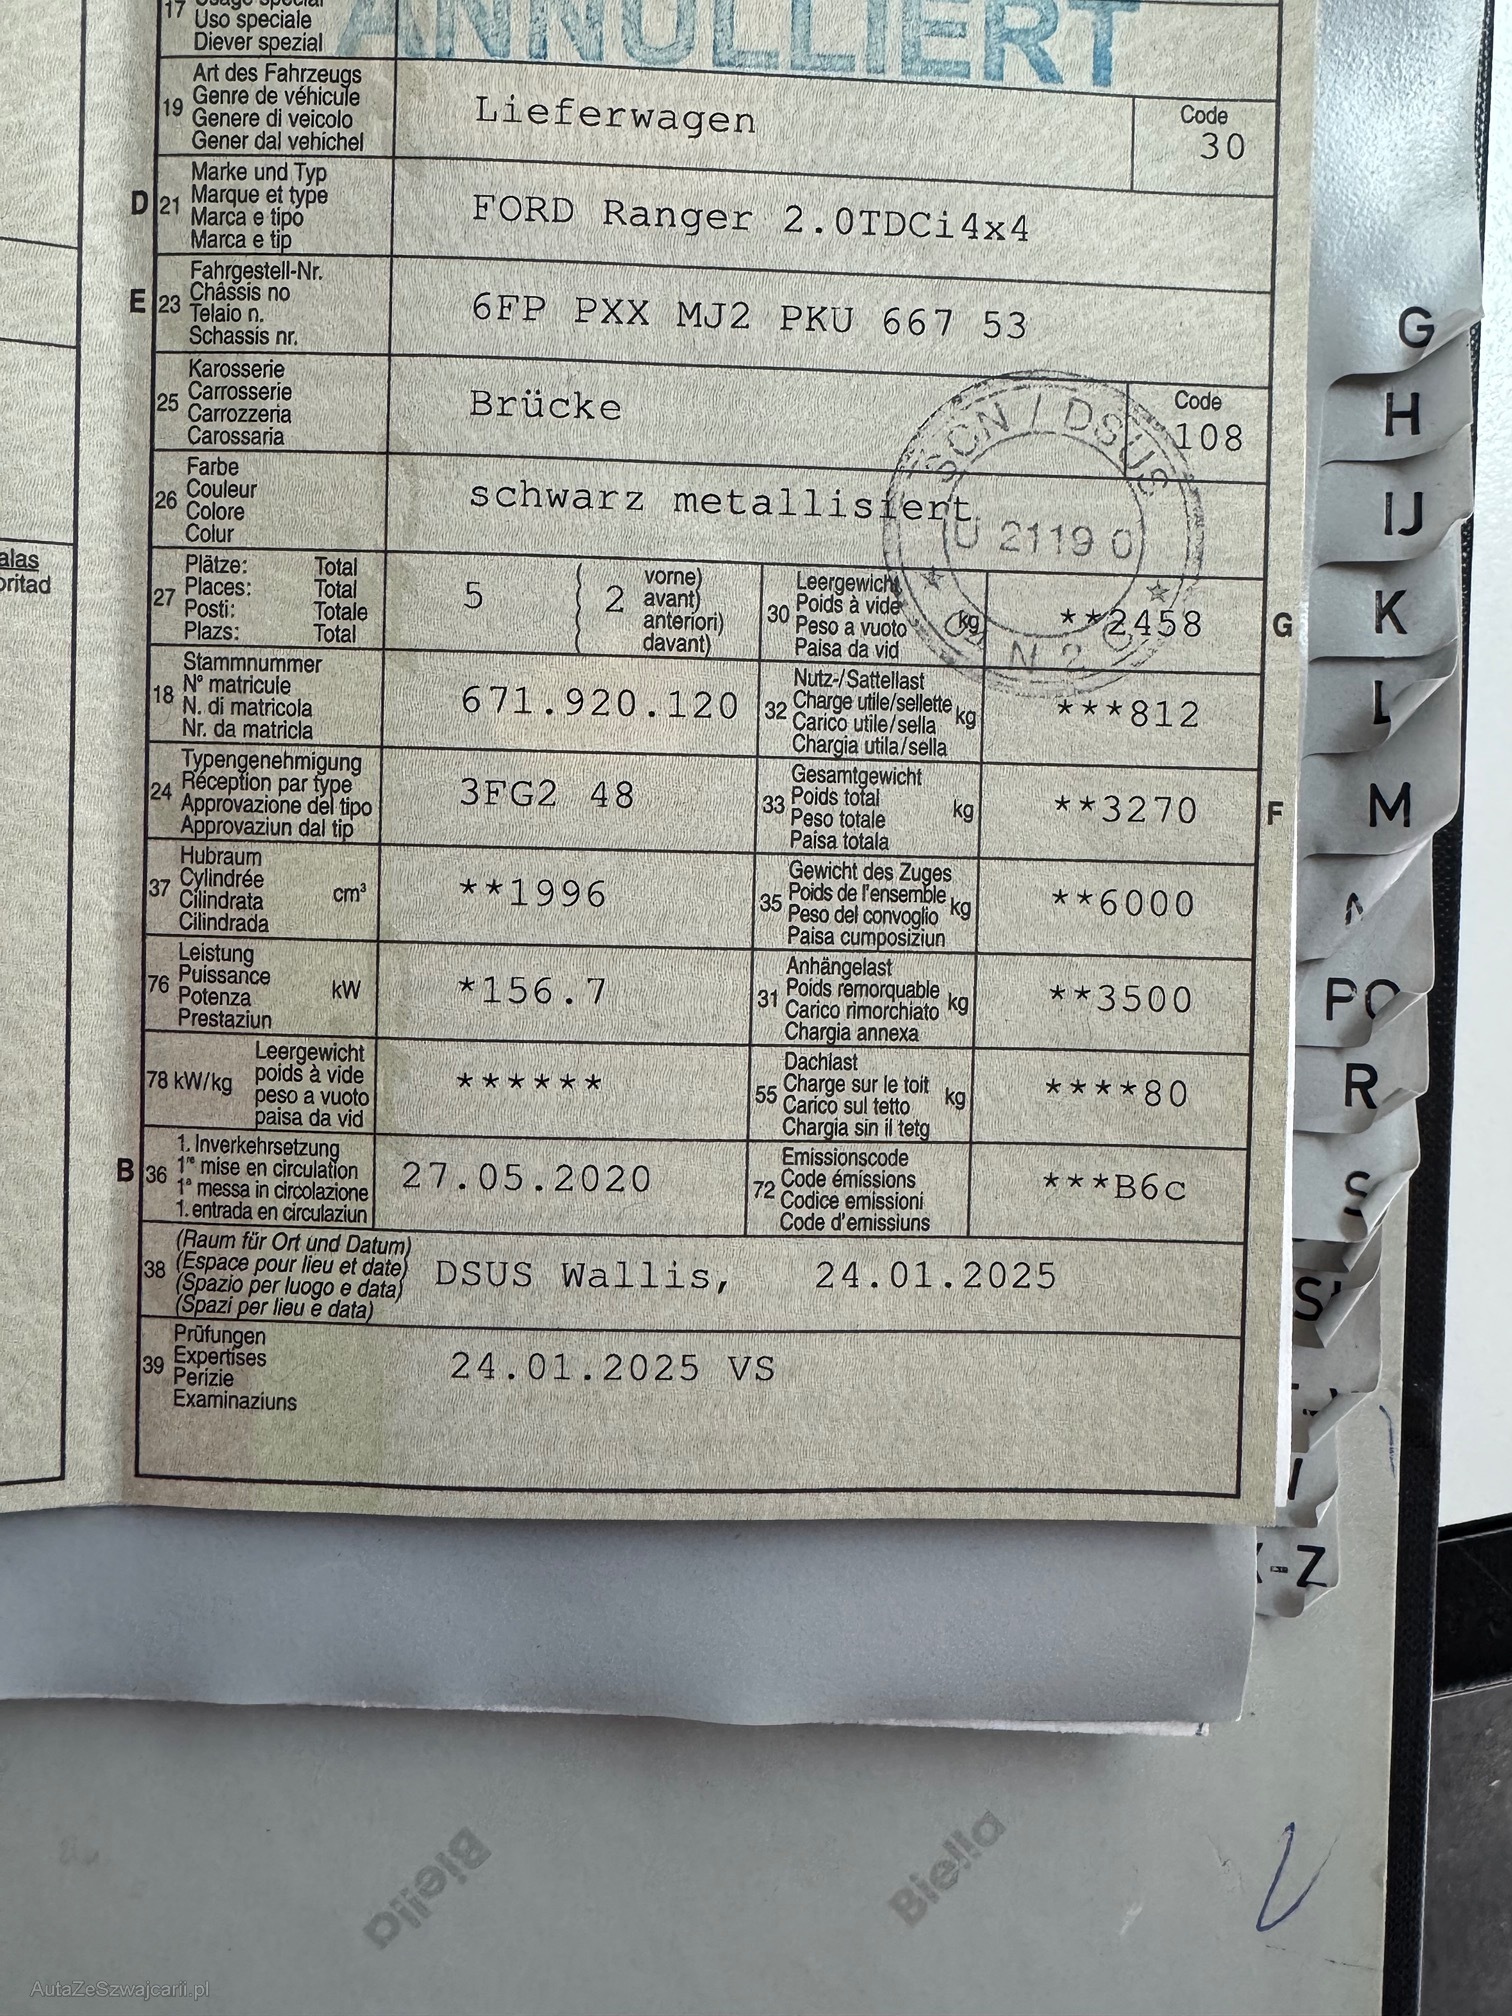 ANNULLIERT
17 Usage spécial
Uso speciale
Diever spezial
19 Art des Fahrzeugs
Genre de véhicule
Genere di veicolo
Gener dal vehichel
Lieferwagen
Code
30
D 21 Marke und Typ
Marque et type
Marca e tipo
Marca e tip
FORD Ranger 2.0TDCi4x4
E 23 Fahrgestell-Nr.
Châssis no
Telaio n.
Schassis nr.
6FP PXX MJ2 PKU 667 53
25 Karosserie
Carrosserie
Carrozzeria
Carossaria
Brücke
Code
108
26 Farbe
Couleur
Colore
Colur
schwarz metallisiert
SCN / DSUS
U 2119 0
N 2
27 Plätze: Total
Places: Total
Posti: Totale
Plazs: Total
5
2 vorne)
avant)
anteriori)
davant)
30 Leergewicht
Poids à vide
Peso a vuoto kg
Paisa da vid
**2458
G
18 Stammnummer
N° matricule
N. di matricola
Nr. da matricla
671.920.120
32 Nutz-/Sattellast
Charge utile/sellette
Carico utile/sella kg
Chargia utila/sella
***812
24 Typengenehmigung
Réception par type
Approvazione del tipo
Approvaziun dal tip
3FG2 48
33 Gesamtgewicht
Poids total
Peso totale kg
Paisa totala
**3270
F
37 Hubraum
Cylindrée
Cilindrata cm³
Cilindrada
**1996
35 Gewicht des Zuges
Poids de l'ensemble
Peso del convoglio kg
Paisa cumposiziun
**6000
76 Leistung
Puissance
Potenza kW
Prestaziun
*156.7
31 Anhängelast
Poids remorquable
Carico rimorchiato kg
Chargia annexa
**3500
78 kW/kg Leergewicht
poids à vide
peso a vuoto
paisa da vid
******
55 Dachlast
Charge sur le toit
Carico sul tetto kg
Chargia sin il tetg
****80
B 36 1. Inverkehrsetzung
1re mise en circulation
1a messa in circolazione
1. entrada en circulaziun
27.05.2020
72 Emissionscode
Code émissions
Codice emissioni
Code d'emissiuns
***B6c
38 (Raum für Ort und Datum)
(Espace pour lieu et date)
(Spazio per luogo e data)
(Spazi per lieu e data)
DSUS Wallis, 24.01.2025
39 Prüfungen
Expertises
Perizie
Examinaziuns
24.01.2025 VS
G
H
IJ
K
L
M
N
PQ
R
S
-Z
Biella
Biella
AutaZeSzwajcarii.pl